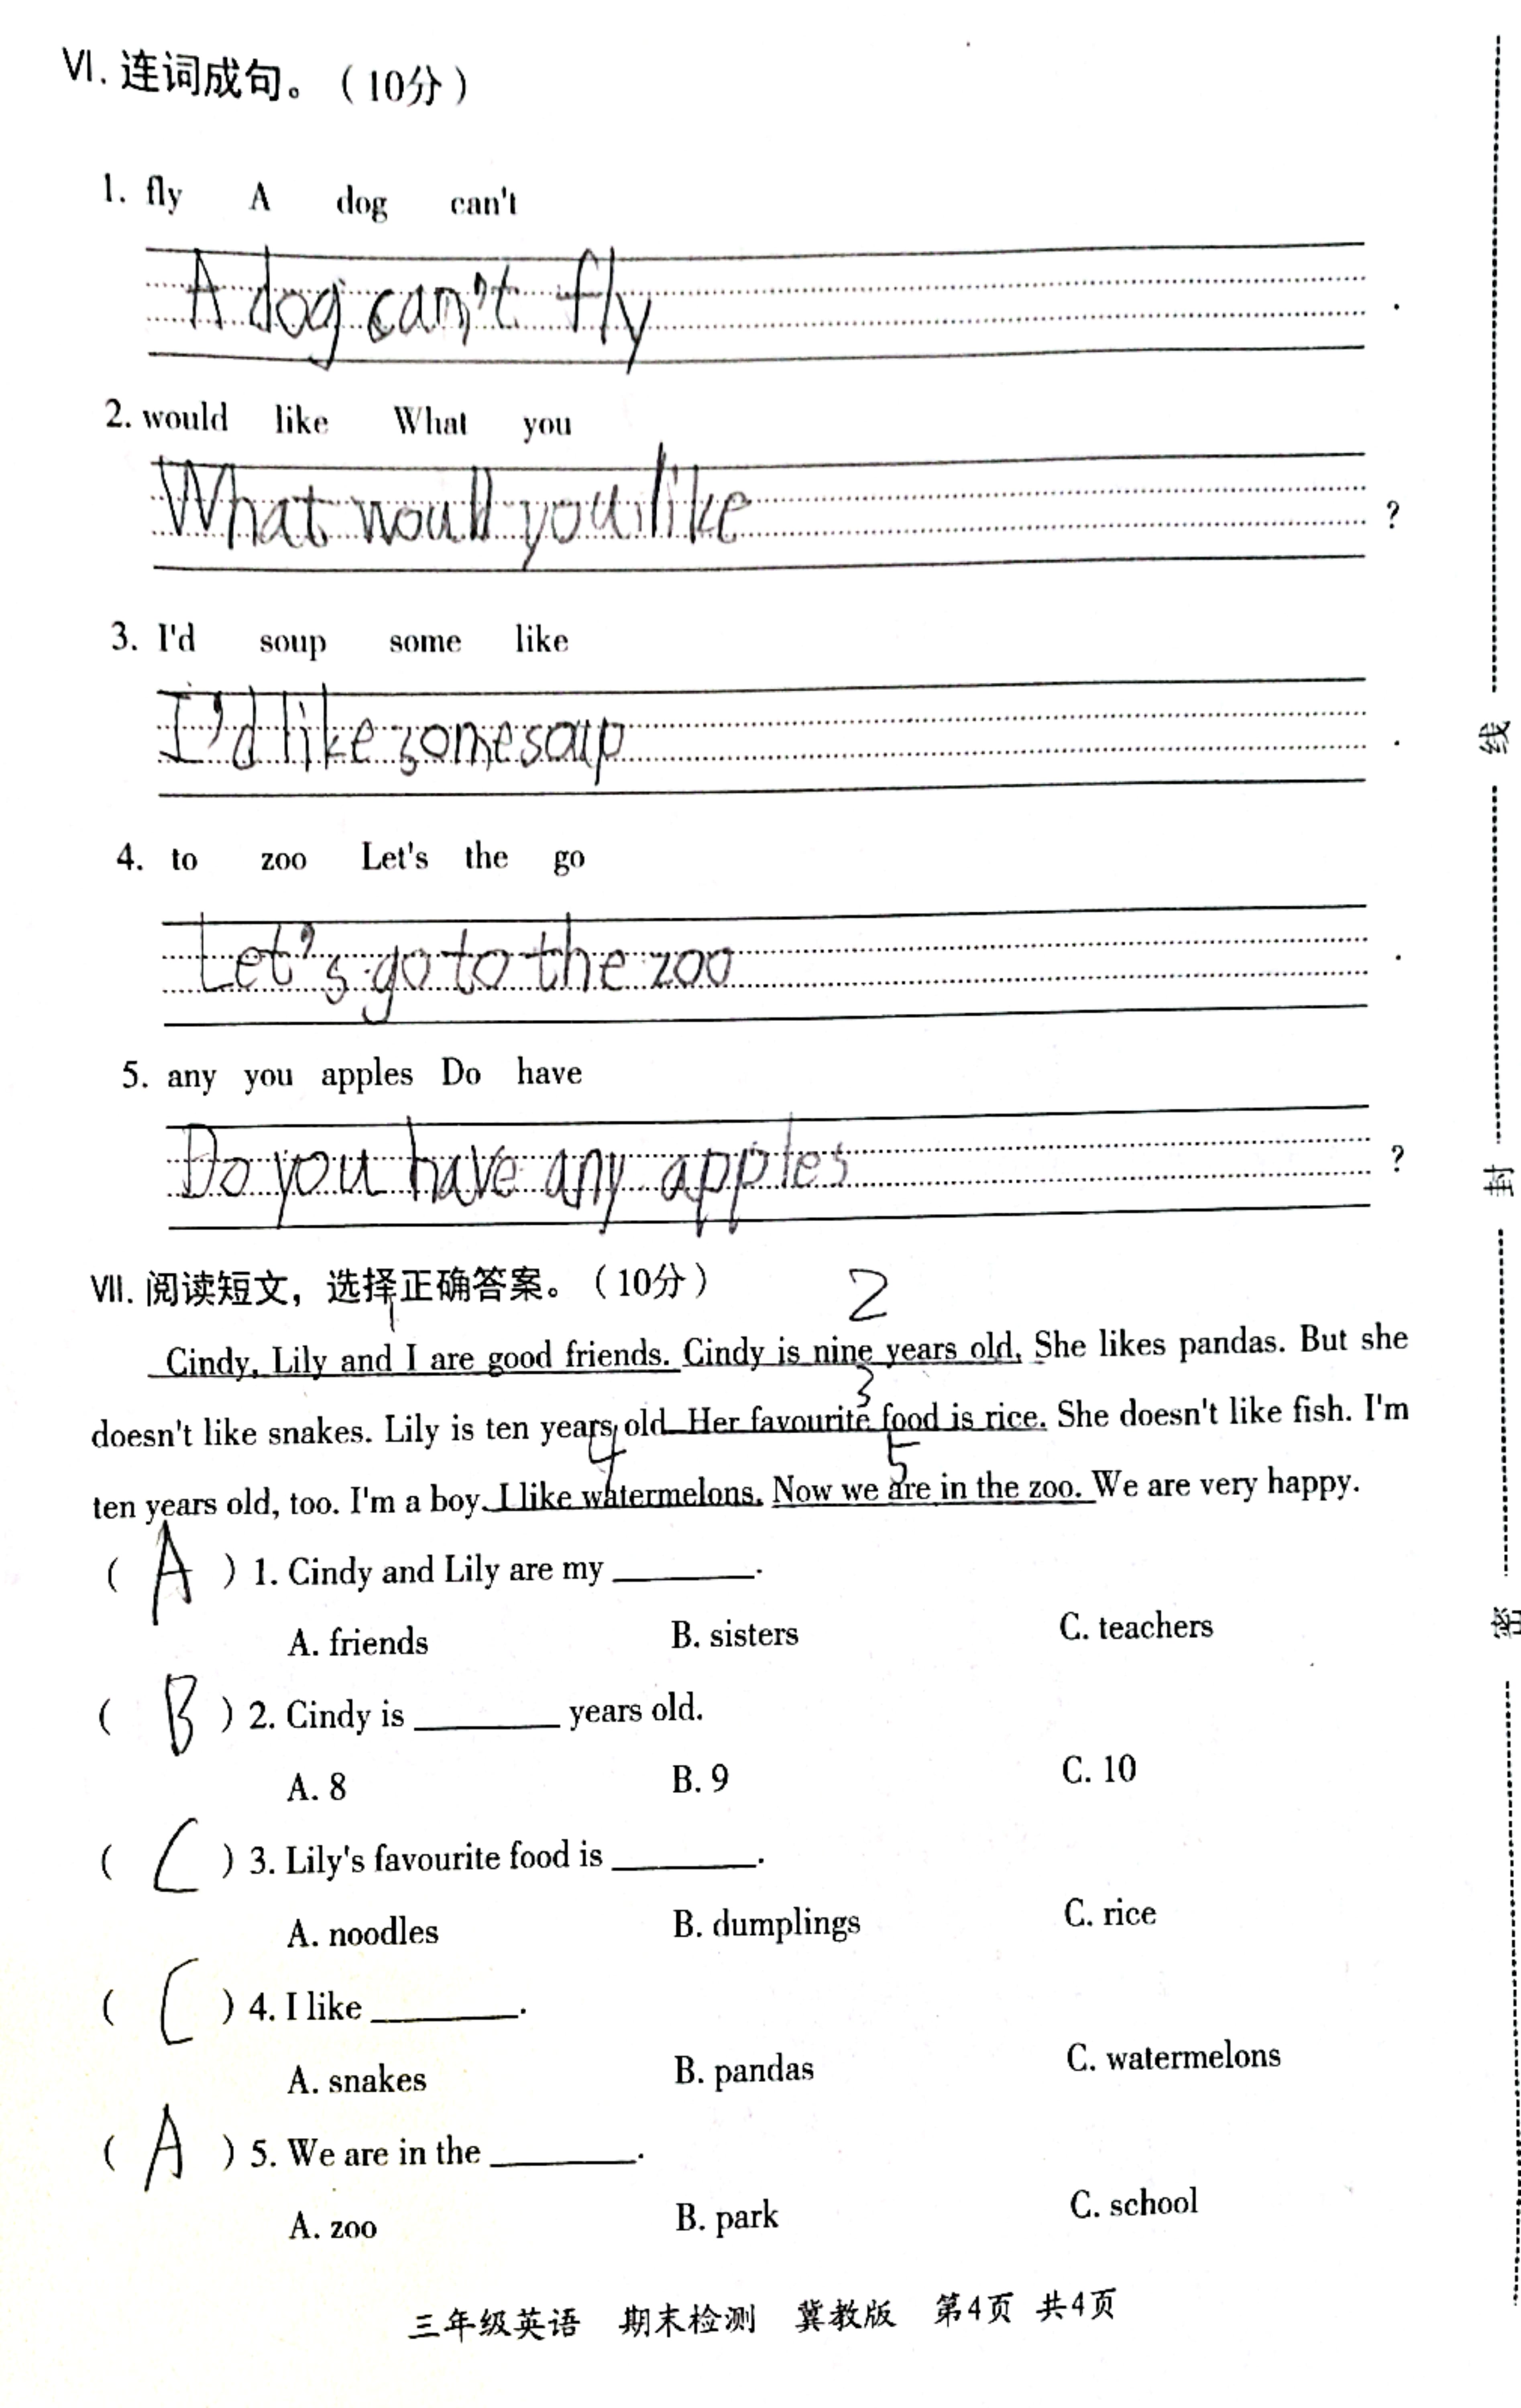 VI. 连词成句。（10分）
1. fly A dog can't
A dog can't fly .
2. would like What you
What would you like ?
3. I'd soup some like
I'd like some soup .
4. to zoo Let's the go
Let's go to the zoo .
5. any you apples Do have
Do you have any apples ?
VII. 阅读短文，选择正确答案。（10分）
1 2
Cindy, Lily and I are good friends. Cindy is nine years old. She likes pandas. But she
3
doesn't like snakes. Lily is ten years old. Her favourite food is rice. She doesn't like fish. I'm
4 5
ten years old, too. I'm a boy. I like watermelons. Now we are in the zoo. We are very happy.
( A ) 1. Cindy and Lily are my ______.
A. friends B. sisters C. teachers
( B ) 2. Cindy is ______ years old.
A. 8 B. 9 C. 10
( C ) 3. Lily's favourite food is ______.
A. noodles B. dumplings C. rice
( C ) 4. I like ______.
A. snakes B. pandas C. watermelons
( A ) 5. We are in the ______.
A. zoo B. park C. school
三年级英语 期末检测 冀教版 第4页 共4页
线
封
密